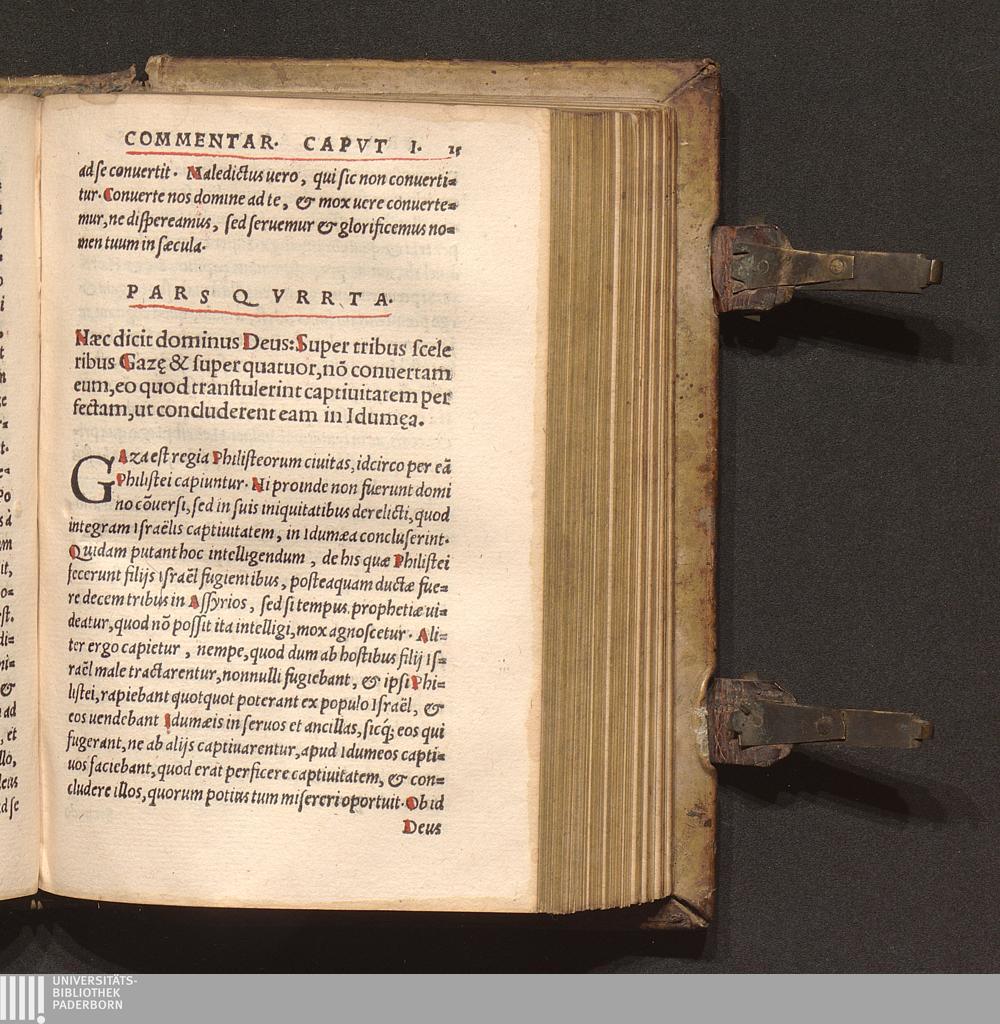 COMMENTAR. CAPVT I. 25
ad se conuertit. Maledictus uero, qui sic non conuerti=
tur. Conuerte nos domine ad te, & mox uere conuerte=
mur, ne dispereamus, sed seruemur & glorificemus no=
men tuum in sæcula.
PARS QVRRTA.
Hæc dicit dominus Deus: Super tribus scele
ribus Gazę & super quatuor, nõ conuertam
eum, eo quod transtulerint captiuitatem per
fectam, ut concluderent eam in Idumęa.
GAza est regia Philisteorum ciuitas, idcirco per eã
Philistei capiuntur. Hi proinde non fuerunt domi
no cõuersi, sed in suis iniquitatibus derelicti, quod
integram Israëlis captiuitatem, in Idumæa concluserint.
Quidam putant hoc intelligendum, de his quæ Philistei
fecerunt filijs Israël fugientibus, posteaquam ductæ fue=
re decem tribus in Assyrios, sed si tempus prophetiæ ui=
deatur, quod nõ possit ita intelligi, mox agnoscetur. Ali=
ter ergo capietur, nempe, quod dum ab hostibus filij Is=
raël male tractarentur, nonnulli fugiebant, & ipsi Phi=
listei, rapiebant quotquot poterant ex populo Israël, &
eos uendebant Idumæis in seruos et ancillas, sicq́; eos qui
fugerant, ne ab alijs captiuarentur, apud Idumeos capti=
uos faciebant, quod erat perficere captiuitatem, & con=
cludere illos, quorum potius tum misereri oportuit. Ob id
Deus
UNIVERSITÄTS-
BIBLIOTHEK
PADERBORN